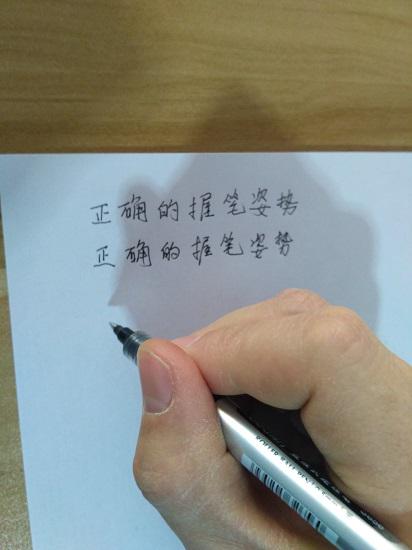 正确的握笔姿势
正确的握笔姿势